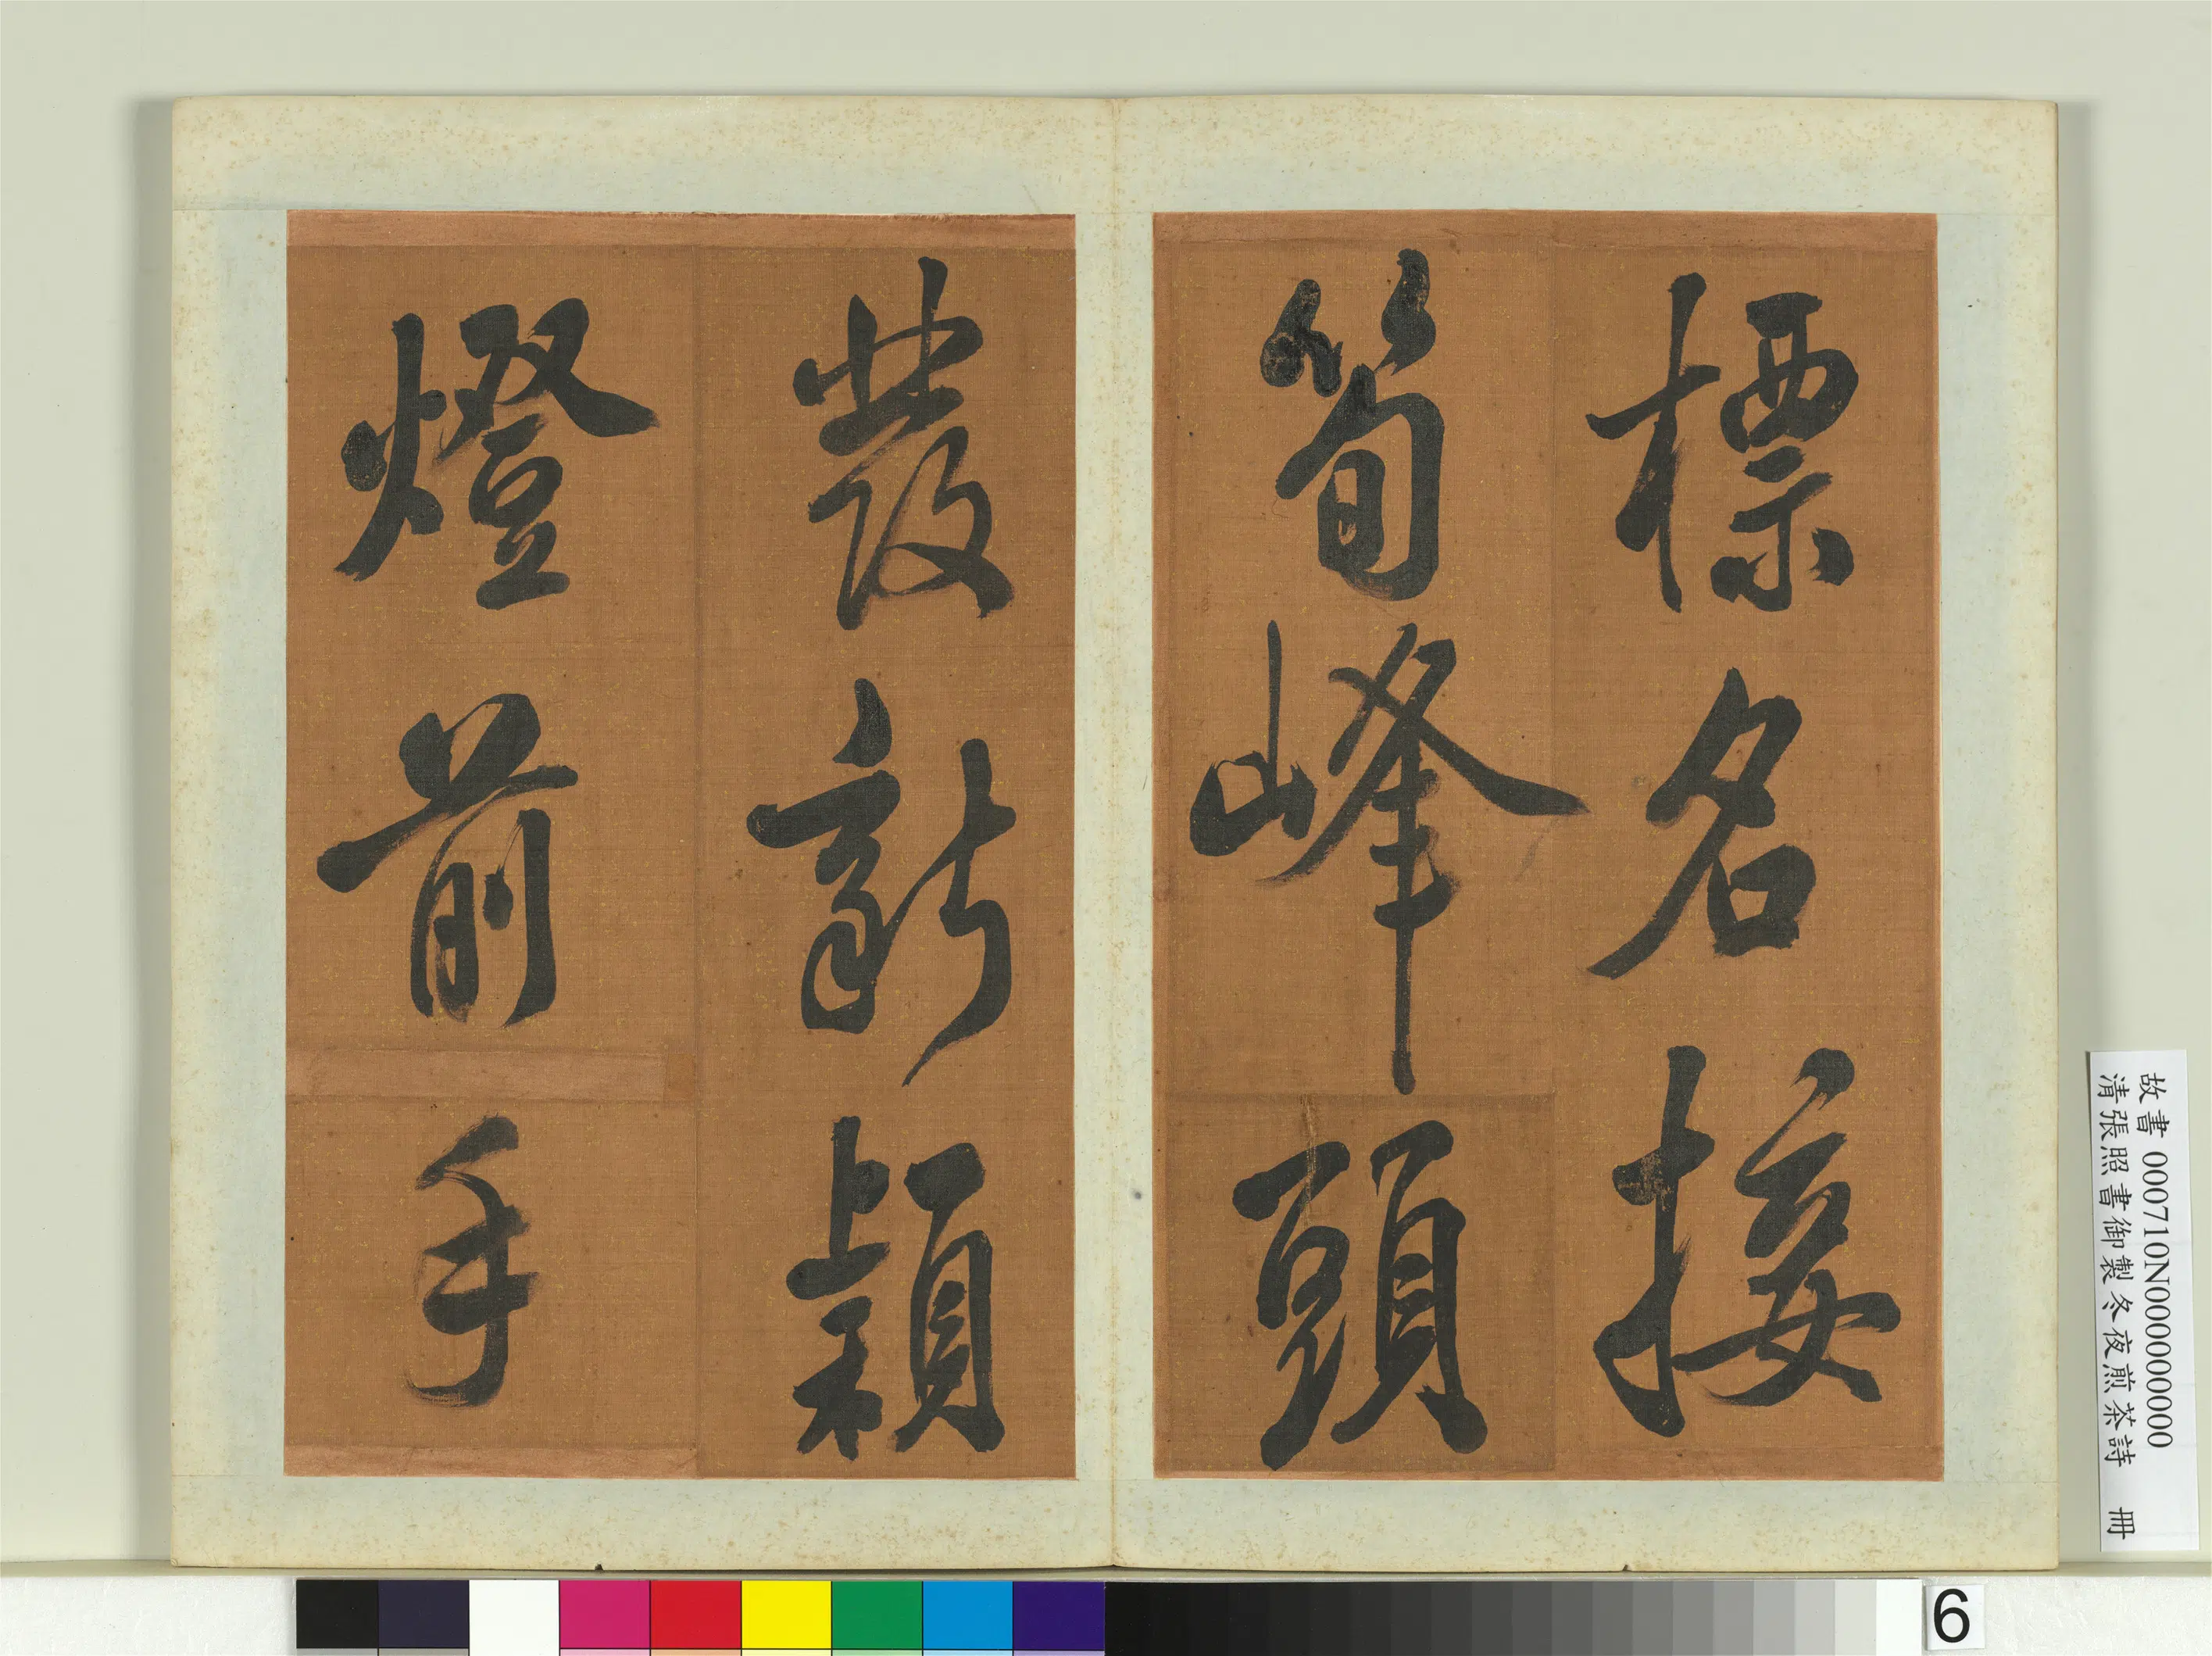 標名接
筍峰頭
發新穎
燈前手
故書 000710N000000000
清張照書御製冬夜煎茶詩 冊
6